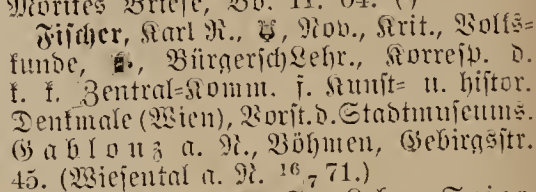 Moritzs Briefe, Bd. 11. 04. ()
Fischer, Karl R., Nov., Krit., Volks=
kunde, Bürgersch Lehr., Korresp. d.
k. k. Zentral=Komm. f. Kunst= u. histor.
Denkmale (Wien), Vorst. d. Stadtmuseums.
Gablonz a. N., Böhmen, Gebirgsstr.
45. (Wiesental a. N. 16/7 71.)